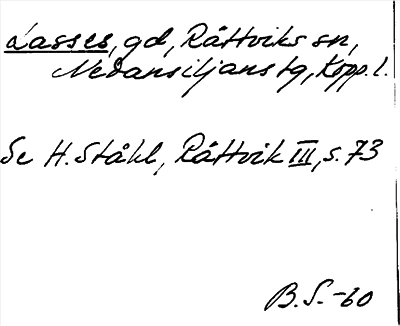 Lasses, gd, Rättviks sn,
Nedansiljans tg, Kopp. l.
Se H. Ståhl, Rättvik III, s. 73
B. S. -60